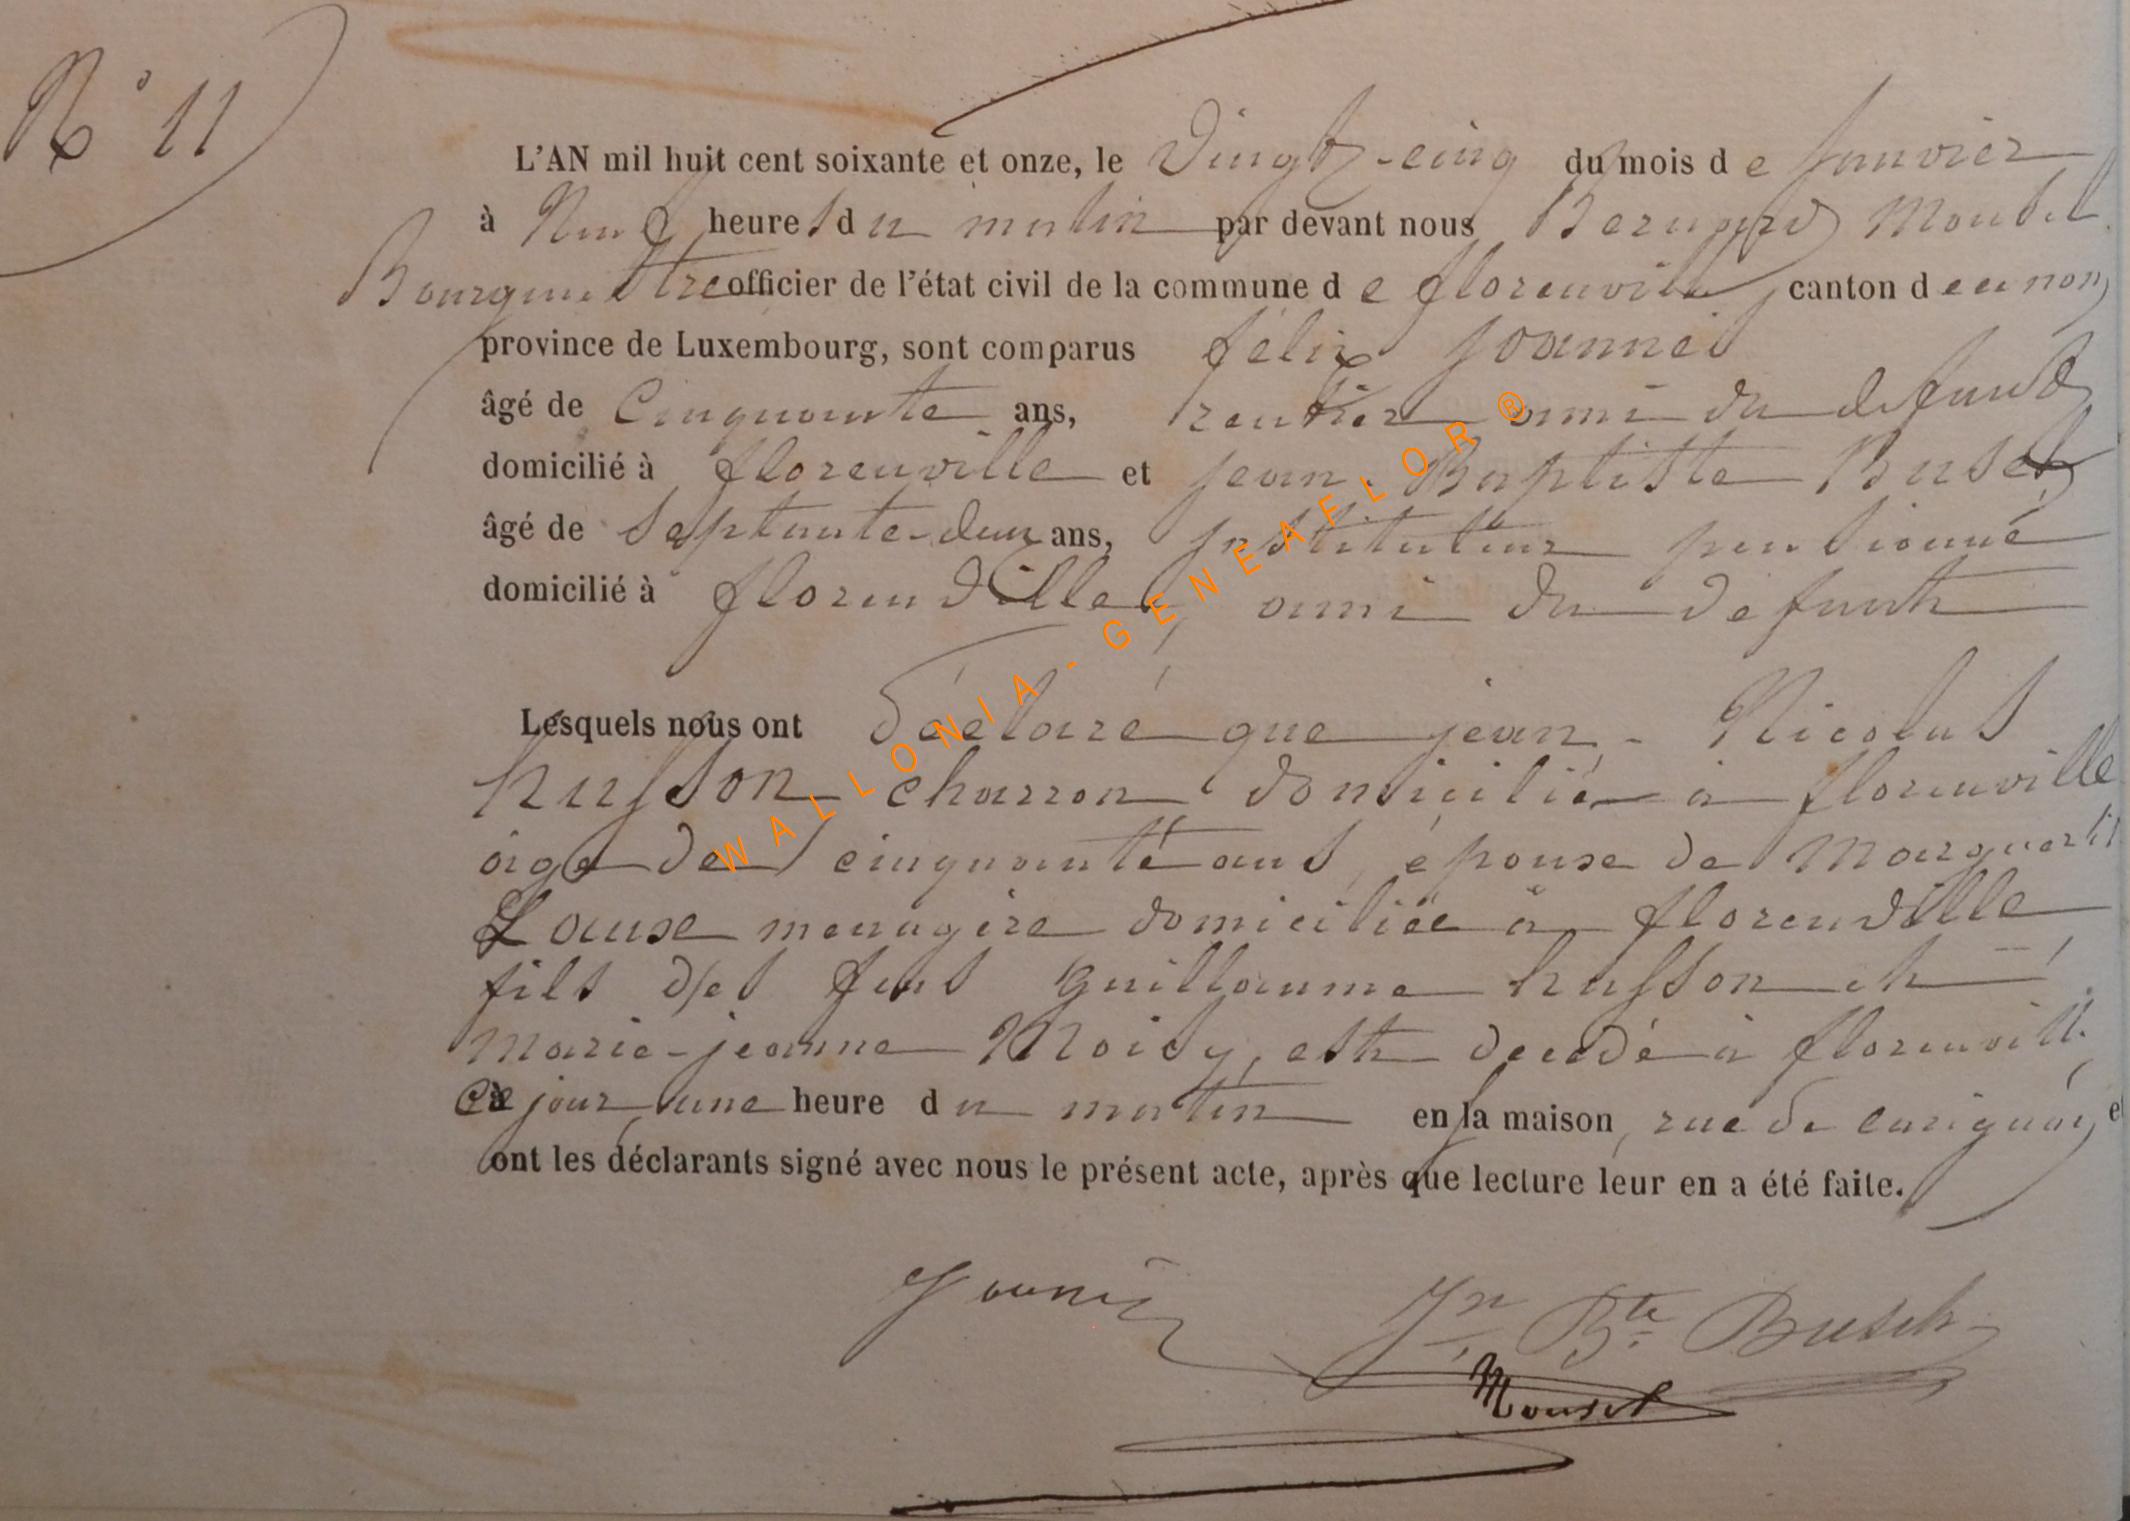 N° 11
L'AN mil huit cent soixante et onze, le Vingt-cinq du mois de Janvier
à Neuf heures du matin par devant nous Bernard Mousel
Bourgmestre officier de l'état civil de la commune de florenville canton dudit nom
province de Luxembourg, sont comparus félix Joannès
âgé de Cinquante ans, rentier ami du defunt
domicilié à florenville et jean Baptiste Busch
âgé de septante-deux ans, Instituteur pensionné
domicilié à florenville, ami du defunt
Lesquels nous ont déclaré que jean-Nicolas
husson charron domicilié à florenville
âgé de cinquante ans, épouse de Marguerite
Lause menagère domiciliée à florenville
fils des feus guillaume husson et
Marie-jeanne Moisy, est decedé à florenville
ce jour, une heure du matin en la maison, rue de carignan, et
ont les déclarants signé avec nous le présent acte, après que lecture leur en a été faite.
Joannès Jn Bte Busch
Mousel
WALLONIA-GENEAFLOR®